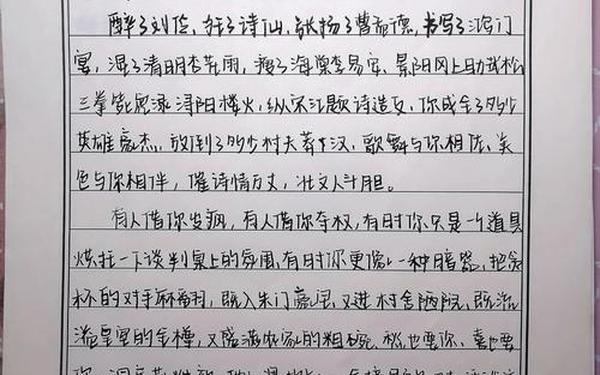 醉了刘伶，狂了诗仙，张扬了曹孟德，书写了鸿门
宴，湿了清明杏花雨，瘦了海棠李易安，景阳冈上助武松
三拳毙虎，浔阳楼头，纵宋江题诗造反，你成全了多少
英雄豪杰，放倒了多少村夫莽汉，歌舞与你相依，美
色与你相伴，催诗情万丈，壮文人斗胆。
有人借你发疯，有人借你夺权，有时你只是一个道具
烘托一下谈判桌上的氛围，有时你更像一种暗器，把贪
杯的对手麻翻，既入朱门豪间，又进村舍陋院，既流
淌皇室的金樽，又盛满农家的粗碗，愁也要你，喜也要
你